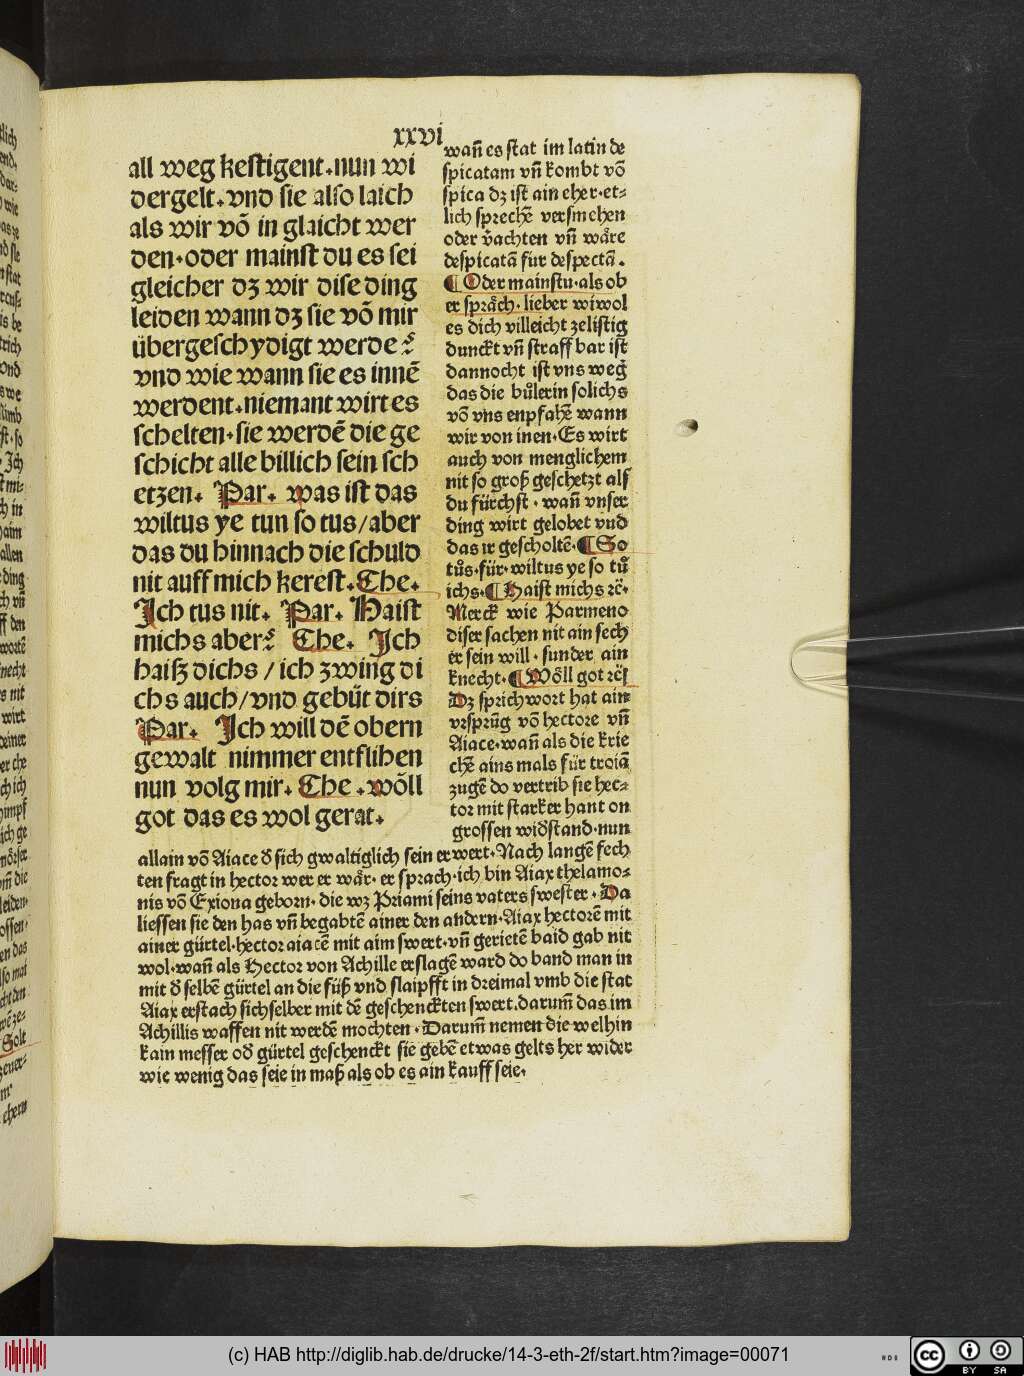 xxvi
all weg kestigent.nun wi
dergelt.vnd sie also laich
als wir võ in glaicht wer
den.oder mainst du es sei
gleicher dz wir dise ding
leiden wann dz sie võ mir
übergeschydigt werde?
vnd wie wann sie es innẽ
werdent.niemant wirt es
schelten.sie werdẽ die ge
schicht alle billich sein sch
etzen. Par. was ist das
wiltus ye tun so tus/aber
das du hinnach die schuld
nit auff mich kerest. Che.
Ich tus nit. Par. Haist
michs aber? Che. Ich
haisz dichs / ich zwing di
chs auch/vnd gebüt dirs
Par. Ich will dẽ obern
gewalt nimmer entflihen
nun volg mir. Che .wõll
got das es wol gerat.
wañ es stat im latin de
spicatam vñ kombt võ
spica dz ist ain eher.et-
lich sprechẽ versmehen
oder v̈achten vñ wåre
despicatã für despectã.
¶ Oder mainstu.als ob
er spräch. lieber wiwol
es dich villeicht zelistig
dunckt vñ straff bar ist
dannocht ist vns weg̃
das die bůlerin solichs
võ vns enpfahẽ wann
wir von inen.Es wirt
auch von menglichem
nit so groß geschetzt alß
du fürchst . wañ vnser
ding wirt gelobet vnd
das ir gescholtẽ.¶ So
tůs.für.wiltus ye so tů
ichs.¶ Haist michs rẽ.
Merck wie Parmeno
diser sachen nit ain sech
er sein will . sunder ain
knecht.¶ Wõll got rẽ
Dz sprichwort hat ain
vrsprũg võ hectore vñ
Aiace.wañ als die krie
chẽ ains mals für troiã
zugẽ do vertrib sie hec-
tor mit starker hant on
grossen widstand.nun
allain võ Aiace đ sich gwaltiglich sein erwert.Nach langẽ fech
ten fragt in hector wer er wär. er sprach.ich bin Aiax thelamo-
nis võ Exiona geborn. die wz Priami seins vaters swester . Da
liessen sie den has vñ begabtẽ ainer den andern.Aiax hectorẽ mit
ainer gürtel.hector aiacẽ mit aim swert.vñ gerietẽ baid gab nit
wol.wañ als Hector von Achille erslagẽ ward do band man in
mit đ selbẽ gürtel an die füß vnd slaipfft in dreimal vmb die stat
Aiax erstach sichselber mit dẽ geschenckten swert.darum̃ das im
Achillis waffen nit werdẽ mochten . Darum̃ nemen die welhin
kain messer ođ gürtel geschenckt sie gebẽ etwas gelts her wider
wie wenig das seie in maß als ob es ain kauff seie.
(c) HAB http://diglib.hab.de/drucke/14-3-eth-2f/start.htm?image=00071
HAB
cc
BY SA